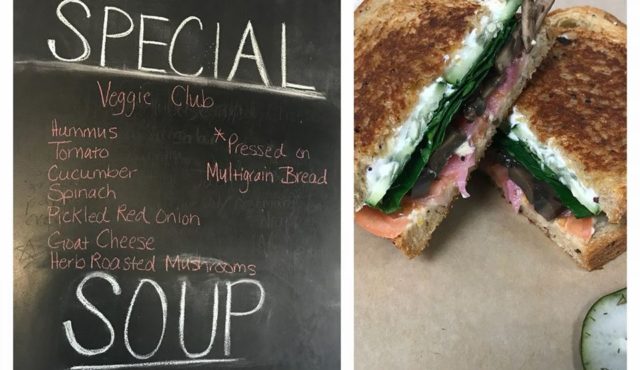 SPECIAL
Veggie Club
Hummus
Tomato
Cucumber
Spinach
Pickled Red Onion
Goat Cheese
Herb Roasted Mushrooms
*Pressed on
Multigrain Bread
SOUP